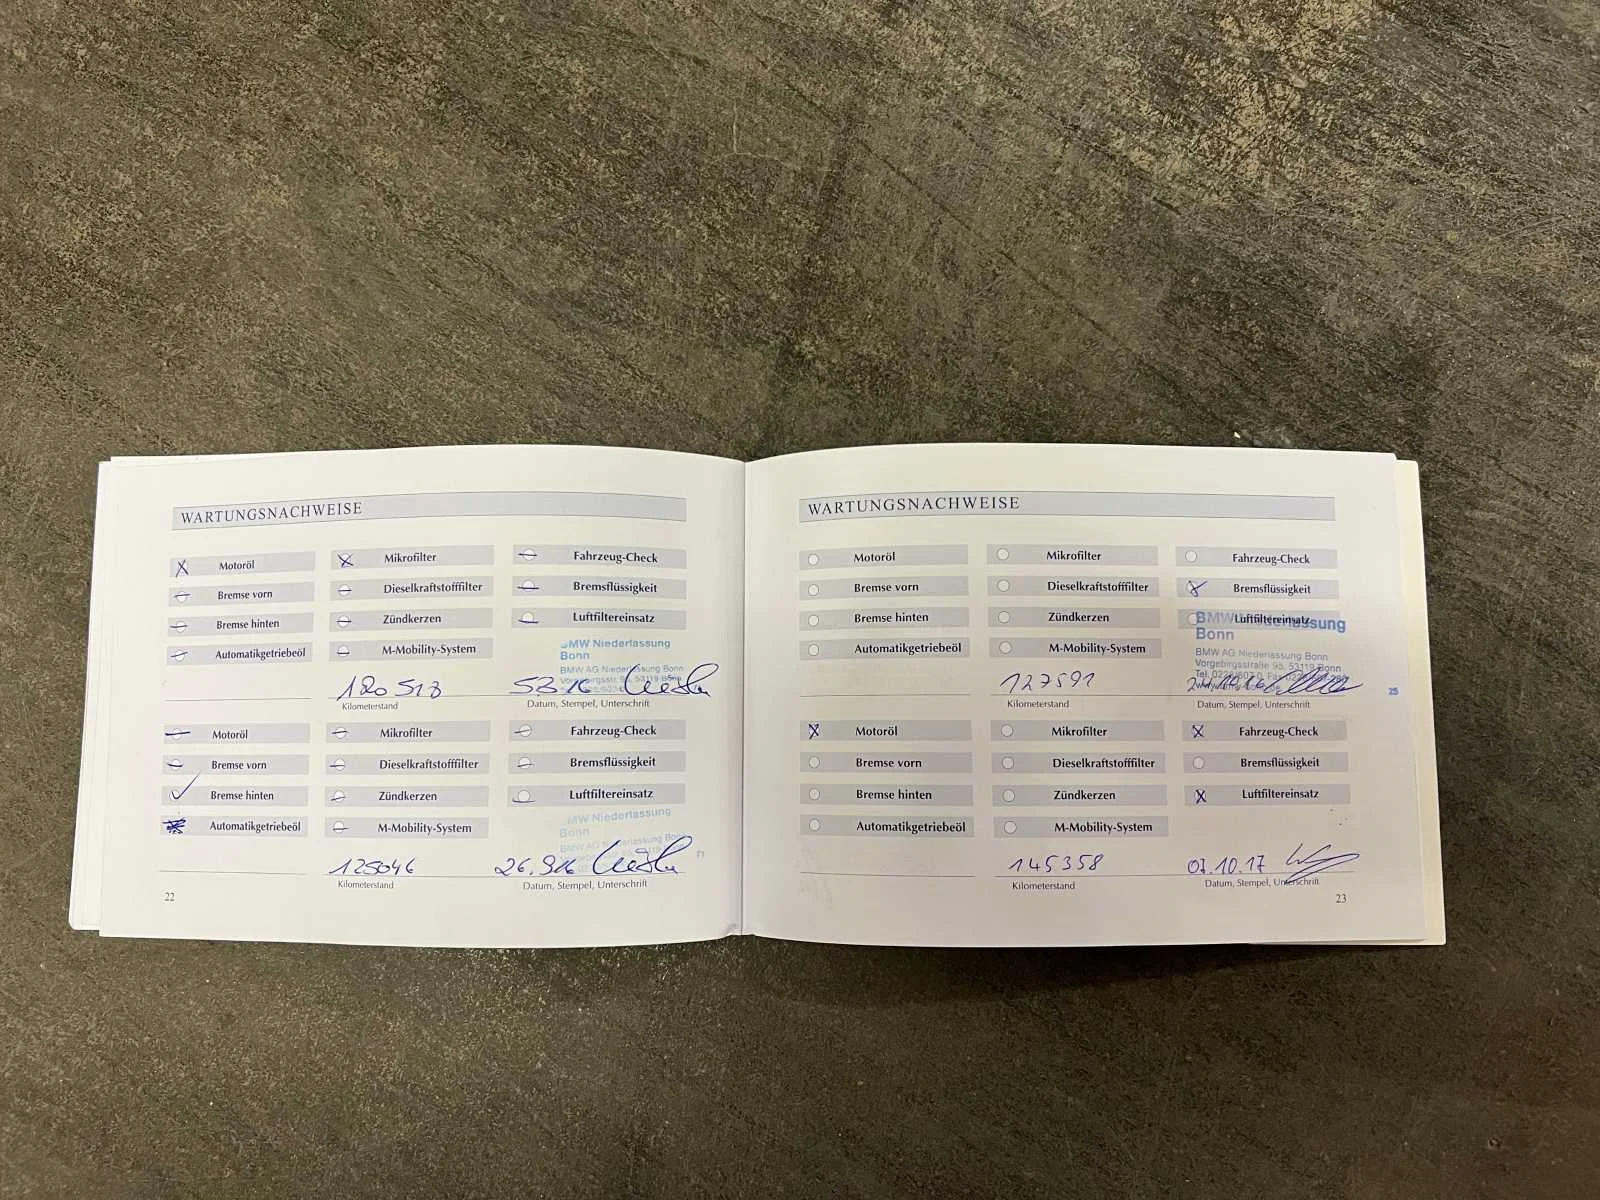 WARTUNGSNACHWEISE
X Motoröl X Mikrofilter Fahrzeug-Check
Bremse vorn Dieselkraftstofffilter Bremsflüssigkeit
Bremse hinten Zündkerzen Luftfiltereinsatz
Automatikgetriebeöl M-Mobility-System
MW Niederlassung
Bonn
BMW AG Niederlassung Bonn
120 518
Kilometerstand Datum, Stempel, Unterschrift
Motoröl Mikrofilter Fahrzeug-Check
Bremse vorn Dieselkraftstofffilter Bremsflüssigkeit
Bremse hinten Zündkerzen Luftfiltereinsatz
Automatikgetriebeöl M-Mobility-System
MW Niederlassung
Bonn
BMW AG Niederlassung Bonn
125046 26.9.16
Kilometerstand Datum, Stempel, Unterschrift
22
WARTUNGSNACHWEISE
Motoröl Mikrofilter Fahrzeug-Check
Bremse vorn Dieselkraftstofffilter X Bremsflüssigkeit
Bremse hinten Zündkerzen Luftfiltereinsatz
Automatikgetriebeöl M-Mobility-System
BMW Niederlassung
Bonn
BMW AG Niederlassung Bonn
Vorgebirgsstraße 95, 53119 Bonn
127591
25
Kilometerstand Datum, Stempel, Unterschrift
X Motoröl Mikrofilter X Fahrzeug-Check
Bremse vorn Dieselkraftstofffilter Bremsflüssigkeit
Bremse hinten Zündkerzen X Luftfiltereinsatz
Automatikgetriebeöl M-Mobility-System
145358 03.10.17
Kilometerstand Datum, Stempel, Unterschrift
23